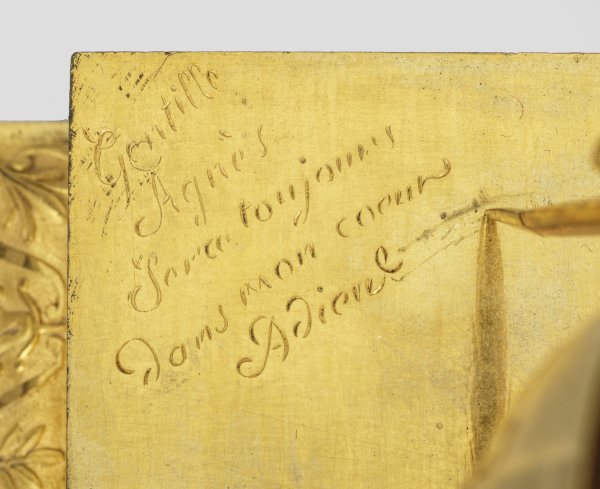 Gentille
Agnès
Sera toujours
dans mon coeur
Adieu